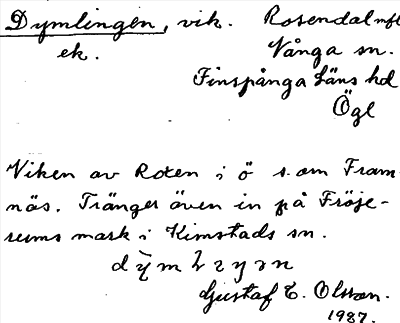 Dymlingen, vik. Rosendal mfl
ek. Vånga sn.
Finspånga Läns hd
Ögl
Viken av Roxen i ö s. om Fram-
näs. Tränger även in på Fröje-
rums mark i Kimstads sn.
Gustaf E. Olsson.
1987.